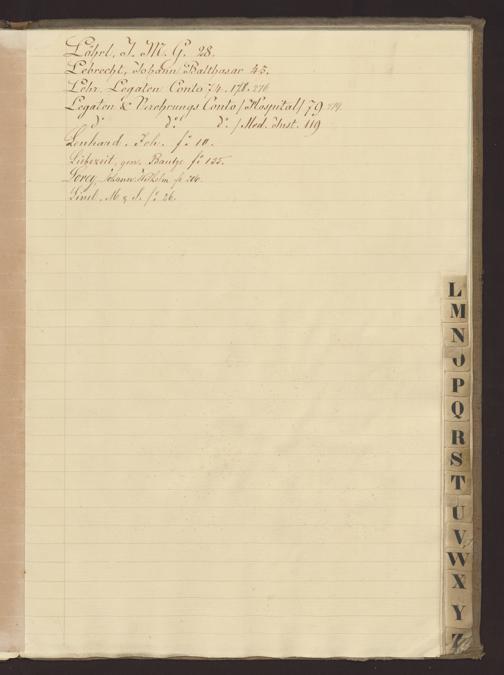 Löhrl, J. M. G. 28.
Lebrecht, Johann Balthasar 45.
Lehr. Legaten Conto 74. 178. 276
Legaten & Verehrungs Conto / Hospital / 79. 274
do do do / Med. Inst. 119
Lenhard. Joh. fo 111.
Liebezeit, gen. fo 155.
Johann Wilhelm fo 206.
M & J. fo 26.
L
M
N
O
P
Q
R
S
T
U
V
W
X
Y
Z